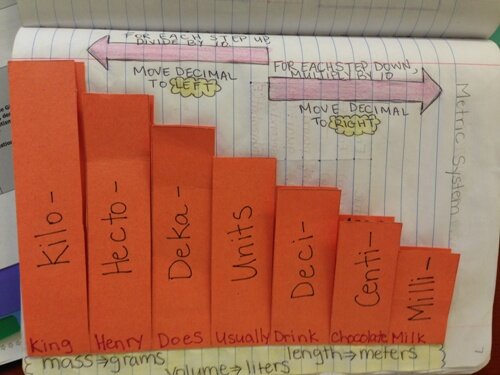 FOR EACH STEP UP,
DIVIDE BY 10
MOVE DECIMAL
TO LEFT
FOR EACH STEP DOWN,
MULTIPLY BY 10
MOVE DECIMAL
TO RIGHT
Metric System
Kilo-
Hecto-
Deka-
Units
Deci-
Centi-
Milli-
King Henry Does Usually Drink Chocolate Milk
mass⇒grams
volume⇒liters
length⇒meters